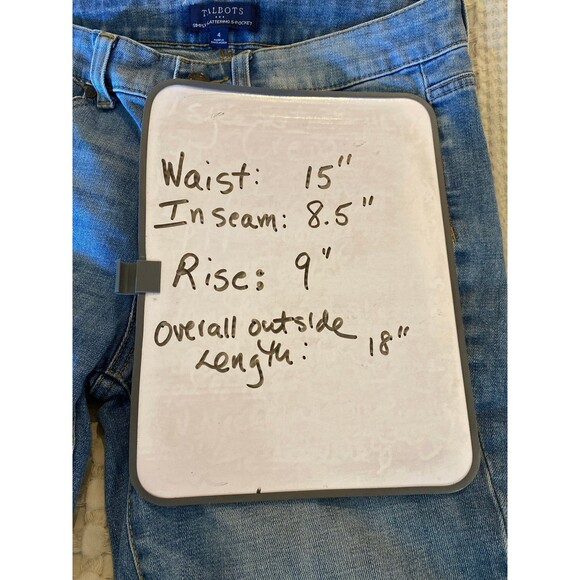 TALBOTS
SIMPLY FLATTERING 5-POCKET
4
Waist: 15"
Inseam: 8.5"
Rise: 9"
Overall outside
Length: 18"